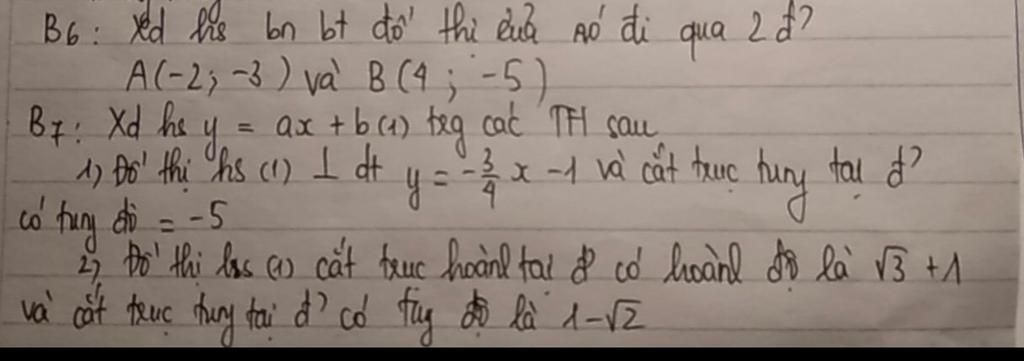 B6: Xđ hs bn bt đồ thị của nó đi qua 2 đ?
A(-2; -3) và B(4; -5)
B7: Xđ hs y = ax + b (1) trg các TH sau
1) Đồ thị hs (1) ⊥ dt y = -3/4 x - 1 và cắt trục tung tại đ?
có tung độ = -5
2) Đồ thị hs (1) cắt trục hoành tại đ? có hoành độ là √3 + 1
và cắt trục tung tại đ? có tung độ là 1-√2